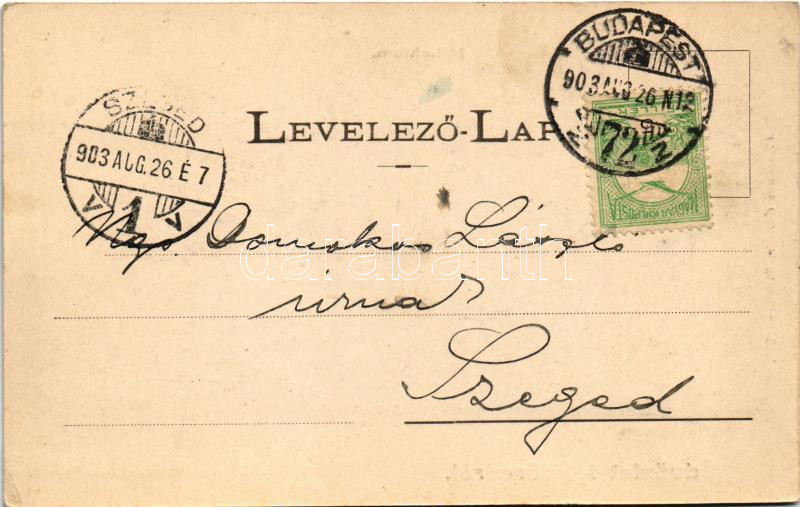 BUDAPEST
903 AUG. 26 N12
72
SZEGED
903 AUG. 26 É 7
1
MAGYAR KIR. POSTA
LEVELEZŐ-LAP
Ngs Domokos László
úrnak
Szeged
darabanth